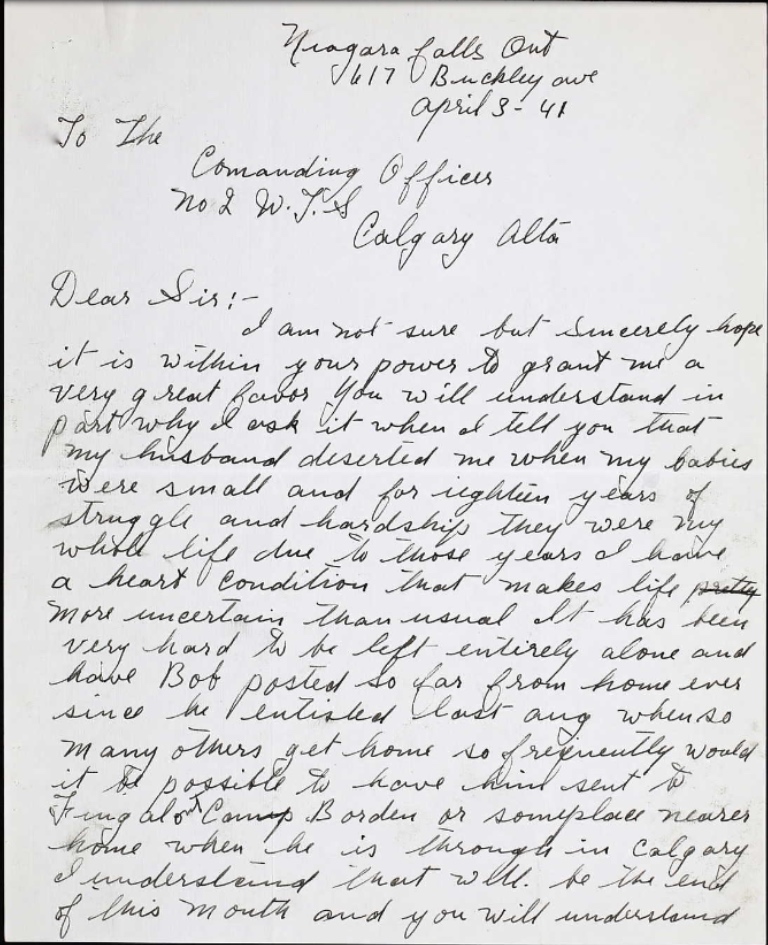 Niagara Falls Ont
1617 Buckley ave
April 3 - 41
To The
Comanding Officer
No 2 W.T.S
Calgary Alta
Dear Sir:-
I am not sure but sincerely hope
it is within your power to grant me a
very great favor You will understand in
part why I ask it when I tell you that
my husband deserted me when my babies
were small and for eighteen years of
struggle and hardship they were my
whole life due to those years I have
a heart condition that makes life pretty
more uncertain than usual It has been
very hard to be left entirely alone and
have Bob posted so far from home ever
since he entisted last aug when so
many others get home so frequently would
it be possible to have him sent to
Fingal or Camp Borden or someplace nearer
home when he is through in Calgary
I understand that will. be the end
of this month and you will understand